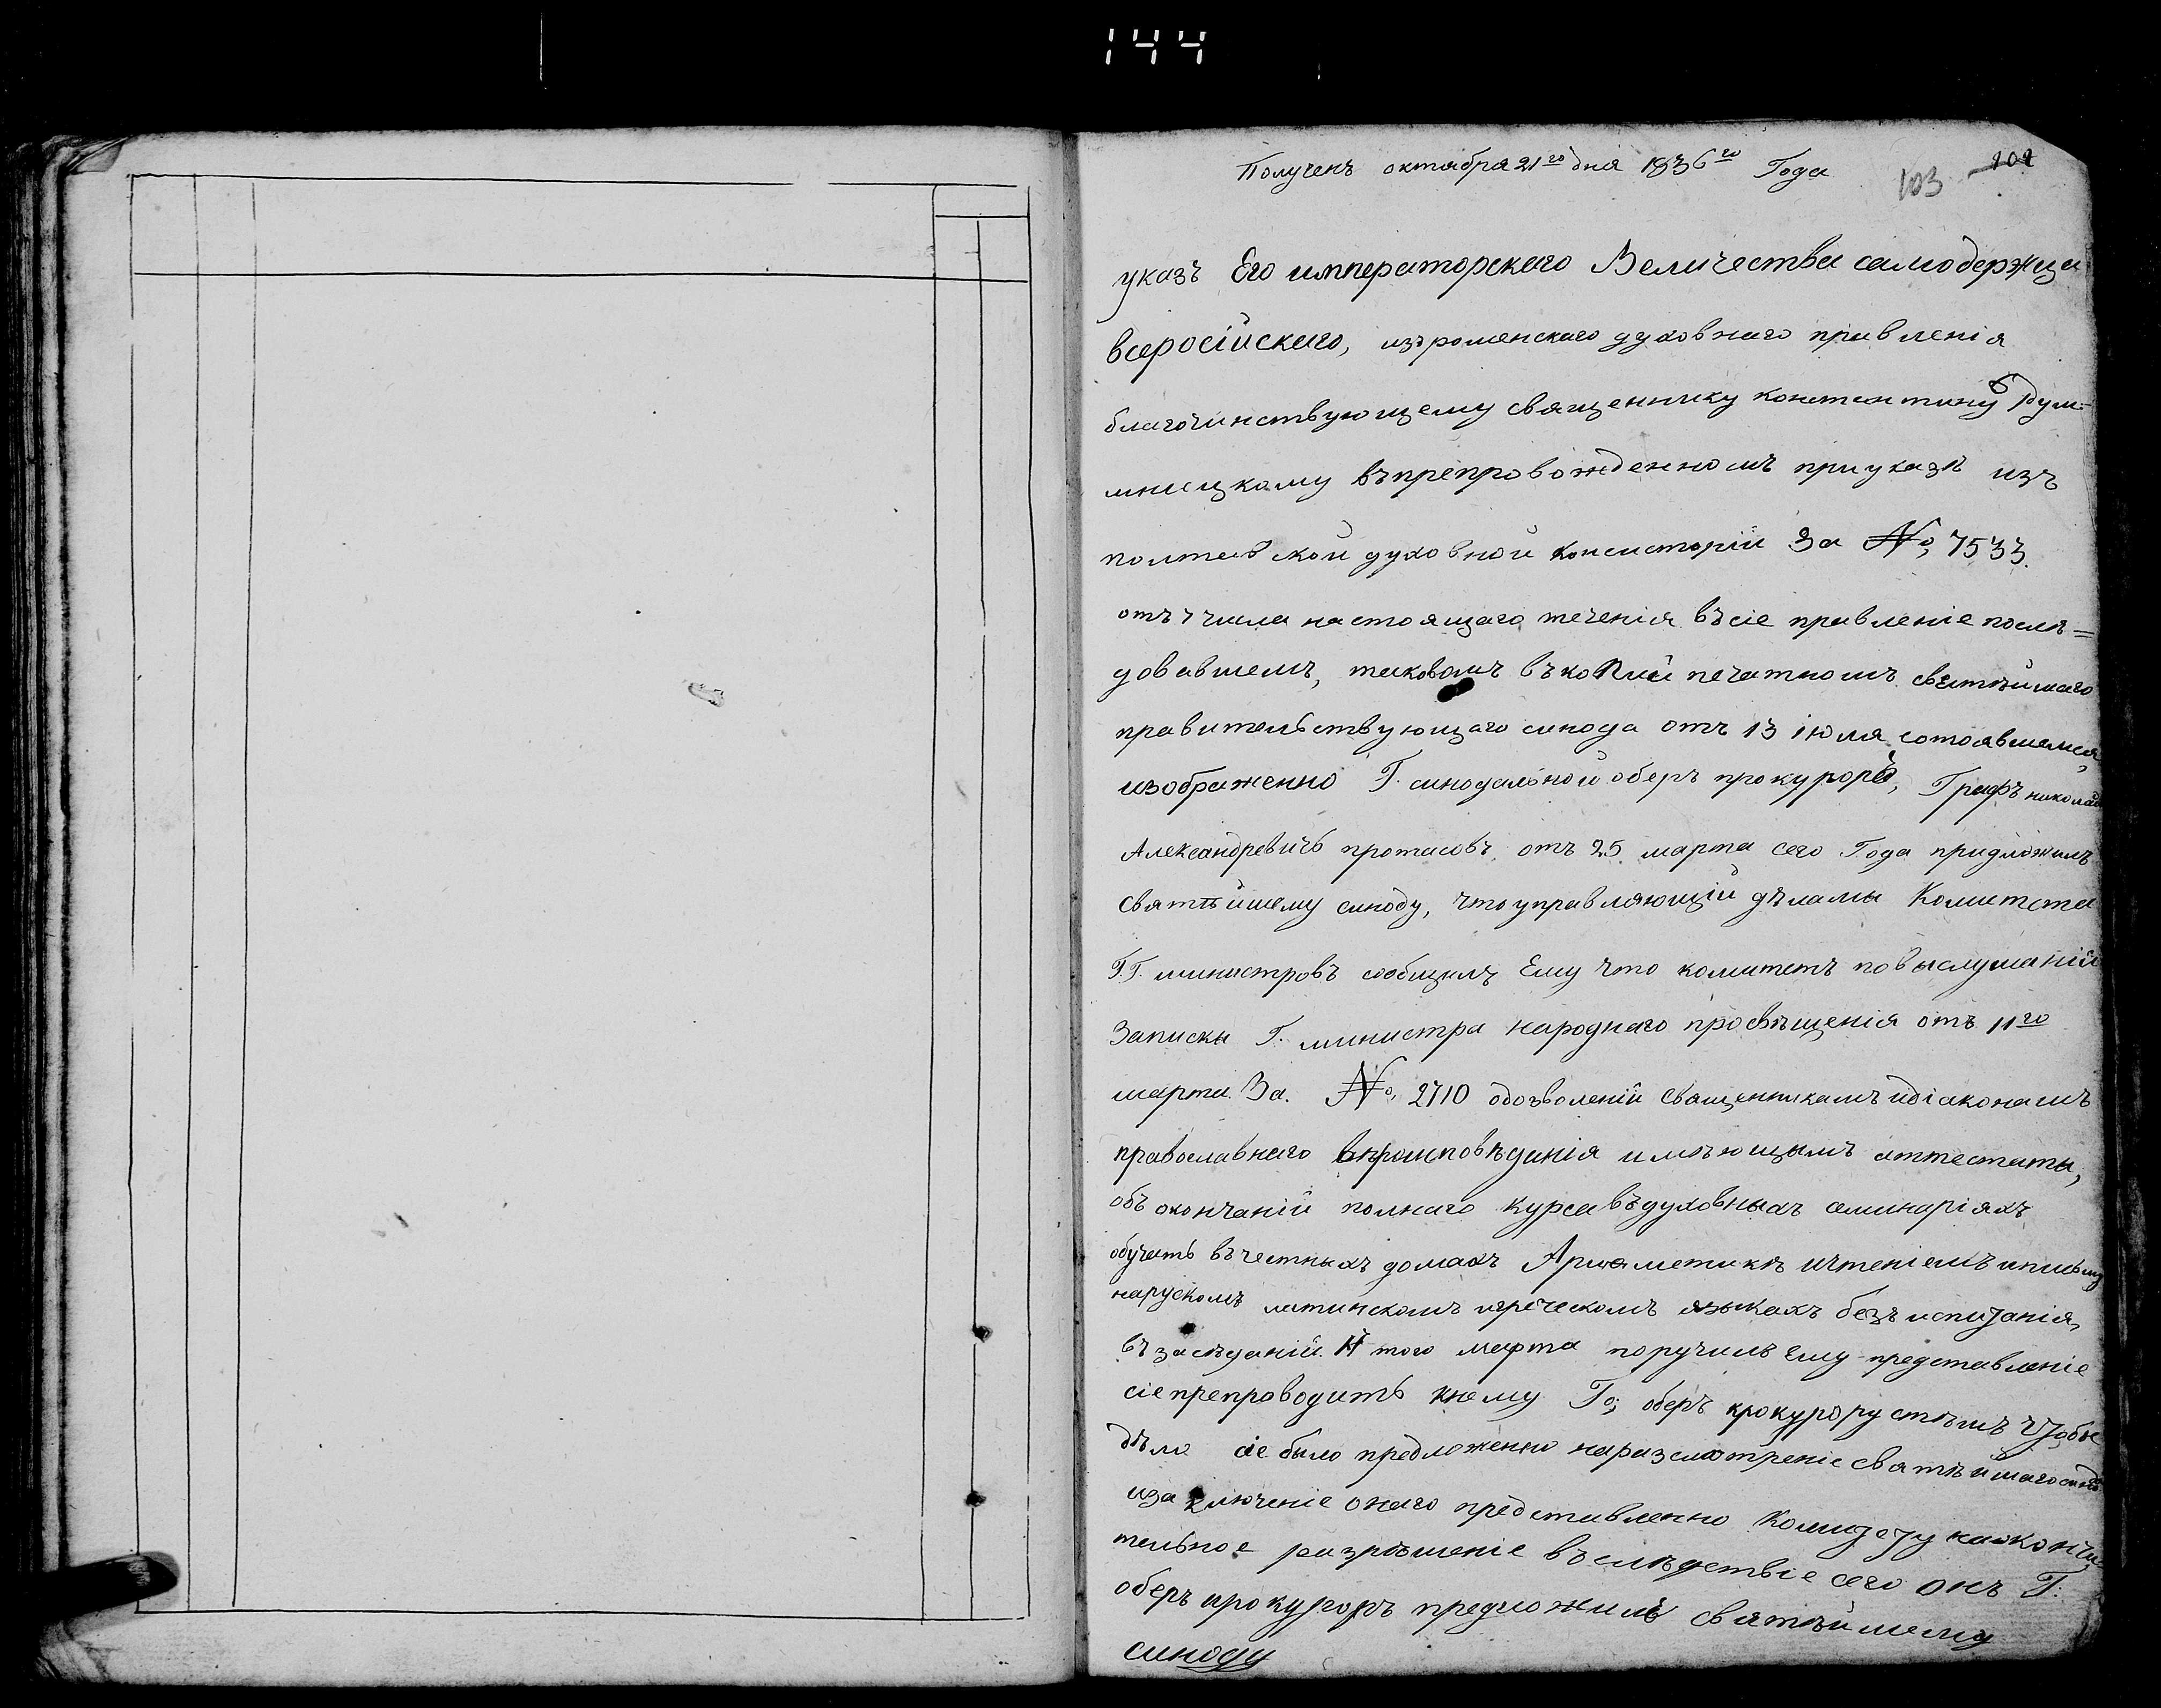 144
Полученъ октября 21го дня 1836го Года
103 102
указъ Его императорскаго Величества самодержца
всеросійскаго, изъроменскаго духовнаго правленія
благочинствующему священнику константину Рум=
мницкому въпрепровожденномъ приуказѣ изъ
полтавской духовной консисторіи За №, 7533.
отъ 7 числа настоящаго теченія въсіе правленіе послѣ=
довавшемъ, таковомъ въкопии печатномъ святѣйшаго
правительствующаго синода отъ 13 іюля, сотоявшемся,
изображенно Г. синодальной оберъ прокуроръ, Графъ николай
Александревичъ протасовъ, отъ 25 марта сего Года придложилъ
святѣйшему синоду, чтоуправляющій дѣламы Комитета
Г.Г. министровъ сообщилъ Ему что комитетъ повыслушаніи
Записки Г. министра народнаго просвѣщенія отъ 11го
марта За. №, 2710 одозволеніи священникамъ идіаконамъ
православнаго вѣроисповѣданія имѣющымъ аттестаты,
объ окончаніи полнаго курса въдуховныхъ семинаріяхъ
обучать въчестныхъ домахъ Арифметикѣ ичтеніемъ иписьму
нарускомъ латинскомъ игреческомъ языкахъ безъ испитанія,
въ засѣданіи того марта поручилъ Ему представленіе
сіе препроводить кнему Го; оберъ прокурору стѣмъ чтобы
дѣло сіе было предложенно наразсмотреніе святѣйшаго синода
изаключеніе онаго представленно Комитету наокончи
тельное разрѣшеніе въслѣдствіе сего онъ Г:
оберъ прокуроръ предложилъ святѣйшему
синоду